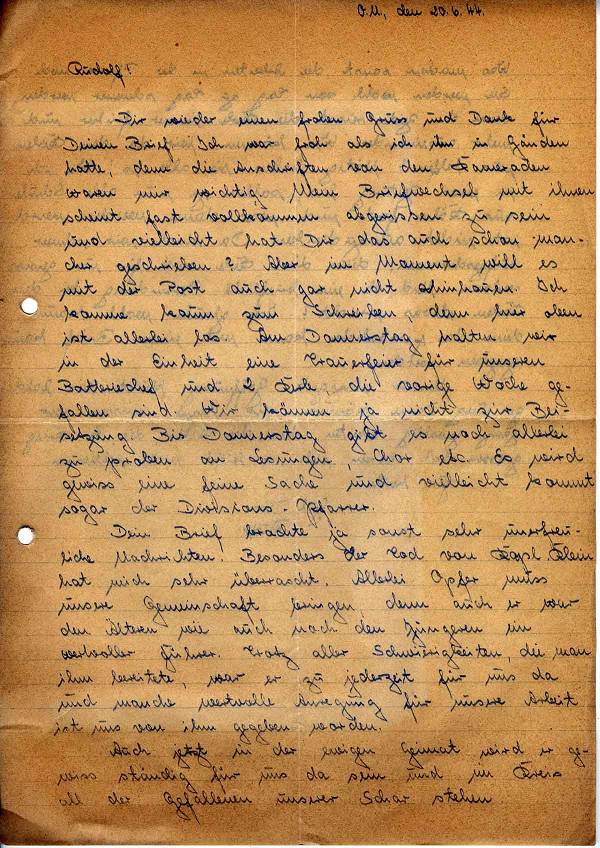 O.U., den 20.6.44.
Rudolf!
Dir wieder einen frohen Gruss und Dank für
Deinen Brief. Ich war froh als ich ihn in Händen
hatte, denn die Anschriften von den Kameraden
waren mir wichtig. Mein Briefwechsel mit ihnen
scheint fast vollkommen abgerissen zu sein
und vielleicht hat Dir das auch schon man-
cher geschrieben? Aber im Moment will es
mit der Post auch gar nicht hinhauen. Ich
komme kaum zum Schreiben, denn hier oben
ist allerlei los. Am Donnerstag halten wir
in der Einheit eine Trauerfeier für unseren
Batteriechef und 2 Krle, die vorige Woche ge-
fallen sind. Wir können ja nicht zur Bei-
setzung. Bis Donnerstag gibt es noch allerlei
zu proben an Lesungen, Chor etc. Es wird
gewiss eine feine Sache und vielleicht kommt
sogar der Divisions-Pfarrer.
Dein Brief brachte ja sonst sehr unerfreu-
liche Nachrichten. Besonders der Tod von Kapl. Klein
hat mich sehr überrascht. Allerlei Opfer muss
unsere Gemeinschaft bringen, denn auch er war
den Älteren wie auch noch den Jüngeren ein
wertvoller Führer. Trotz aller Schwierigkeiten, die man
ihm bereitete, war er zu jederzeit für uns da
und manche wertvolle Anregung für unsere Arbeit
ist uns von ihm gegeben worden.
Auch jetzt in der ewigen Heimat wird er ge-
wiss ständig für uns da sein und im Kreis
all der Gefallenen unserer Schar stehen